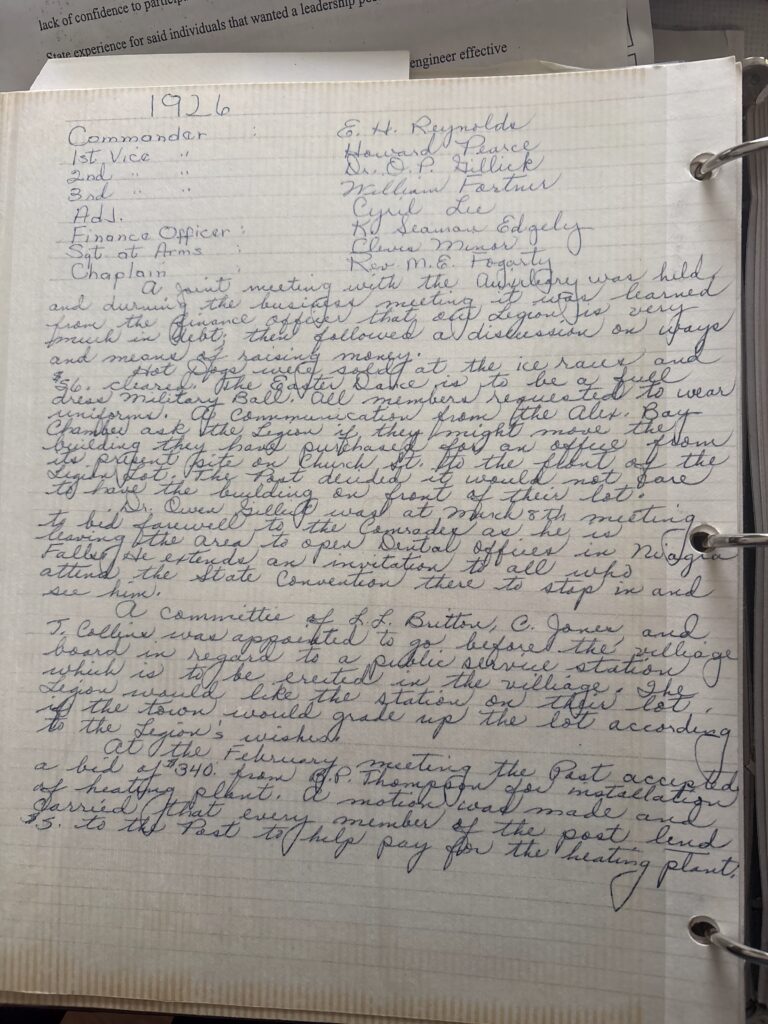 lack of confidence to particip
State experience for said individuals that wanted a leadership po
engineer effective
1926
Commander : E. H. Reynolds
1st Vice " Howard Pearce
2nd " " Dr. O. P. Gillick
3rd " " William Fortner
Adj. Cyril Lee
Finance Officer : K. Seaman Edgely
Sgt. at Arms Clevis Minor
Chaplain : Rev. M. E. Fogarty
A joint meeting with the was held
and durning the business meeting it was learned
from the finance officer that our Legion is very
much in debt; then followed a discussion on ways
and means of raising money.
Hot Dogs were sold at the ice races and
$56. cleared. The Easter Dance is to be a full
dress Military Ball. All members requested to wear
uniforms. A Communication from the Alex. Bay
Chamber ask the Legion if they might move the
building they have purchased for an office from
its present site on Church St. to the front of the
Legion Lot. The Post decided it would not care
to have the building on front of their lot.
Dr. Owen Gillick was at March 8th meeting
to bid farewell to the Comrades as he is
leaving the area to open Dental Offices in Niagra
Falls. He extends an invitation to all who
attend the State Convention there to stop in and
see him.
A committie of L. L. Britton, C. Jones and
T. Collins was appointed to go before the villiage
board in regard to a public service station
which is to be erected in the villiage. The
Legion would like the station on their lot,
if the town would grade up the lot according
to the Legion's wishes.
At the February meeting the Post accepted
a bid of $340. from B. P. Thompson for installation
of heating plant. A motion was made and
carried that every member of the post lend
$5. to the Post to help pay for the heating plant.